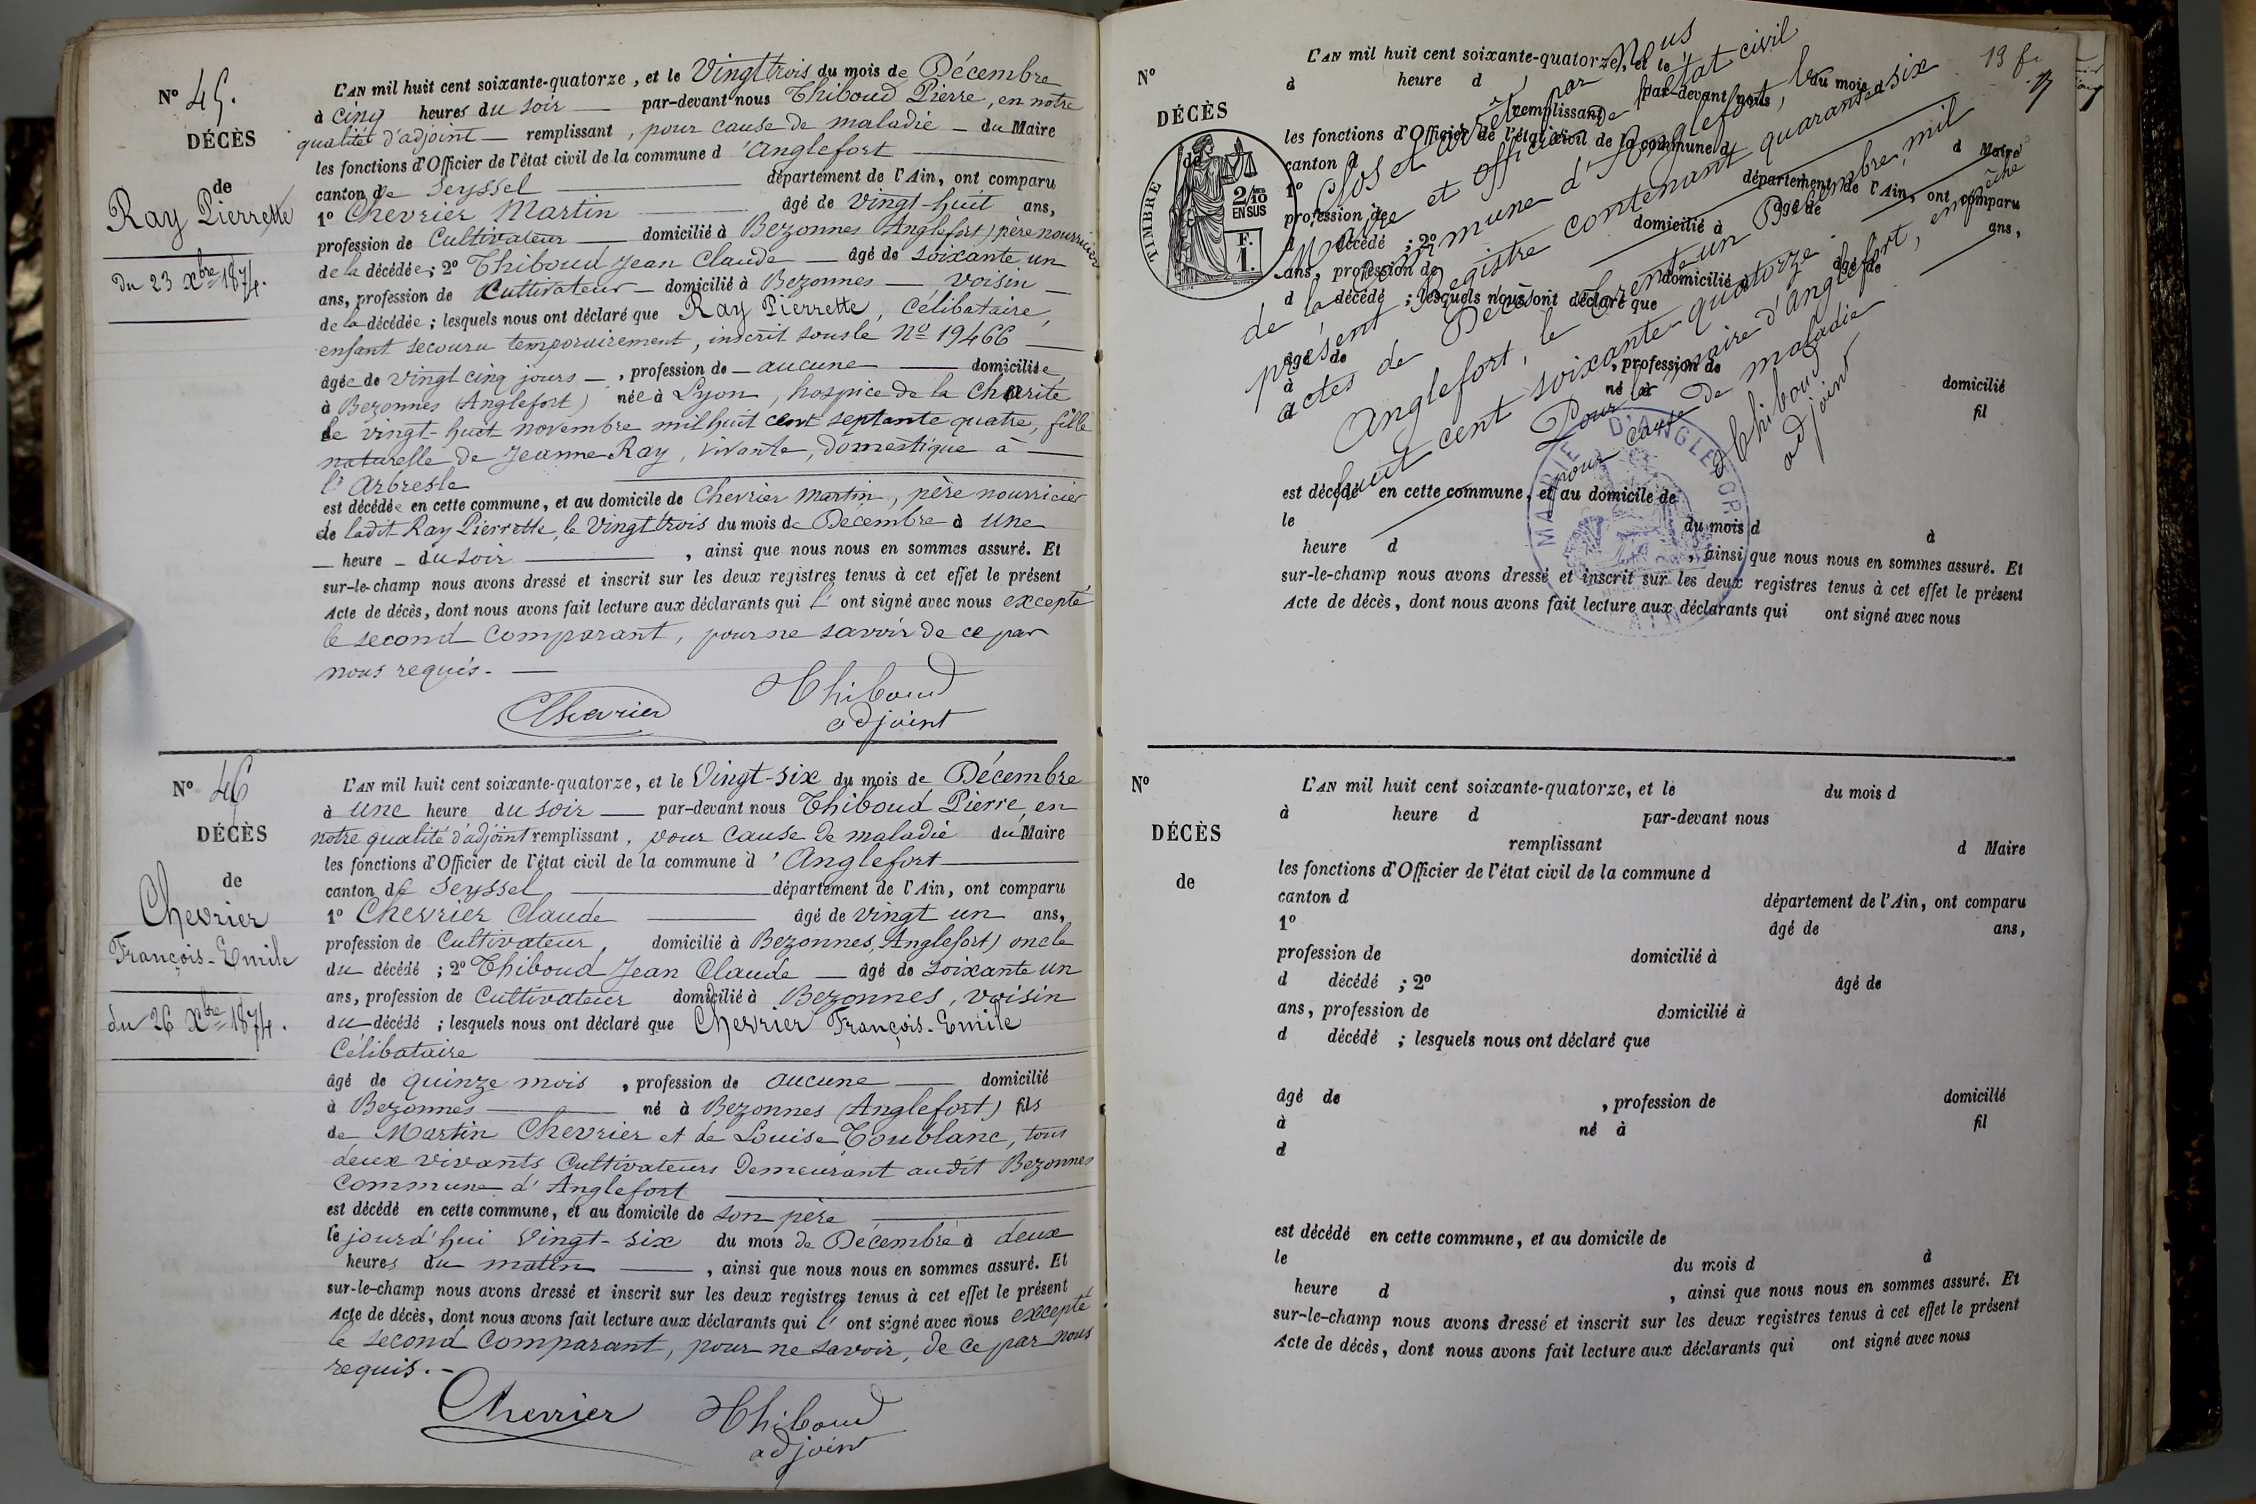 N° 45.
DÉCÈS
de
Ray Pierrette
du 23 Xbre 1874.
L'AN mil huit cent soixante-quatorze, et le Vingt trois du mois de Décembre
à cinq heures du soir — par-devant nous Thiboud Pierre, en notre
qualité d'adjoint — remplissant, pour cause de maladie — du Maire
les fonctions d'Officier de l'état civil de la commune d'Anglefort
canton de Seyssel — département de l'Ain, ont comparu
1° Chevrier Martin — âgé de vingt-huit ans,
profession de Cultivateur — domicilié à Bezonnes (Anglefort) père nourricier
de la décédée; 2° Thiboud Jean Claude — âgé de soixante un
ans, profession de Cultivateur — domicilié à Bezonnes — voisin —
de la décédée; lesquels nous ont déclaré que Ray Pierrette, Célibataire,
enfant secouru temporairement, inscrit sous le N° 19466 —
âgée de vingt cinq jours —, profession de — aucune — domiciliée
à Bezonnes (Anglefort) née à Lyon, hospice de la Charité
le vingt-huit novembre mil huit cent septante quatre, fille
naturelle de Jeanne Ray, vivante, domestique à —
l'Arbresle
est décédée en cette commune, et au domicile de Chevrier Martin, père nourricier
de ladit Ray Pierrette, le Vingt trois du mois de Décembre à Une
— heure — du soir —, ainsi que nous nous en sommes assuré. Et
sur-le-champ nous avons dressé et inscrit sur les deux registres tenus à cet effet le présent
Acte de décès, dont nous avons fait lecture aux déclarants qui l' ont signé avec nous excepté
le second comparant, pour ne savoir de ce par
nous requis. —
Chevrier
Thiboud
adjoint
N° 46
DÉCÈS
de
Chevrier
François-Emile
du 26 Xbre 1874.
L'AN mil huit cent soixante-quatorze, et le Vingt-six du mois de Décembre
à une heure du soir — par-devant nous Thiboud Pierre, en
notre qualité d'adjoint remplissant, pour cause de maladie du Maire
les fonctions d'Officier de l'état civil de la commune d'Anglefort
canton de Seyssel — département de l'Ain, ont comparu
1° Chevrier Claude — âgé de vingt un ans,
profession de Cultivateur, domicilié à Bezonnes, (Anglefort) oncle
du décédé; 2° Thiboud Jean Claude — âgé de soixante un
ans, profession de Cultivateur domicilié à Bezonnes, voisin
du décédé; lesquels nous ont déclaré que Chevrier François-Emile
Célibataire
âgé de quinze mois, profession de aucune — domicilié
à Bezonnes — né à Bezonnes (Anglefort) fils
de Martin Chevrier et de Louise Toublanc, tous
deux vivants Cultivateurs demeurant audit Bezonnes
Commune d'Anglefort
est décédé en cette commune, et au domicile de son père
le jourd'hui Vingt-six du mois de Décembre à deux
heures du matin —, ainsi que nous nous en sommes assuré. Et
sur-le-champ nous avons dressé et inscrit sur les deux registres tenus à cet effet le présent
Acte de décès, dont nous avons fait lecture aux déclarants qui l' ont signé avec nous excepté
le second comparant, pour ne savoir, de ce par nous
requis. —
Chevrier
Thiboud
adjoint
N°
DÉCÈS
de
TIMBRE
2/10
EN SUS
F.
1.
L'AN mil huit cent soixante-quatorze, et le du mois
à heure d par-devant nous
remplissant d Maire
les fonctions d'Officier de l'état civil de la commune d
canton d département de l'Ain, ont comparu
1° âgé de ans,
profession de domicilié à
d décédé ; 2° âgé de
ans, profession de domicilié à
d décédé ; lesquels nous ont déclaré que
âgé de , profession de domicilié
à né à fil
d
est décédé en cette commune, et au domicile de
le du mois d à
heure d , ainsi que nous nous en sommes assuré. Et
sur-le-champ nous avons dressé et inscrit sur les deux registres tenus à cet effet le présent
Acte de décès, dont nous avons fait lecture aux déclarants qui ont signé avec nous
Clos et arrêté par Nous
Maire et officier de l'état civil
de la Commune d'Anglefort, le
présent Registre contenant quarante six
actes de Décès.
Anglefort, le trente un Décembre, mil
huit cent soixante-quatorze.
Pour le maire d'Anglefort, empêché
pour cause de maladie
Thiboud
adjoint
MAIRIE D'ANGLEFORT
AIN
N°
DÉCÈS
de
L'AN mil huit cent soixante-quatorze, et le du mois d
à heure d par-devant nous
remplissant d Maire
les fonctions d'Officier de l'état civil de la commune d
canton d département de l'Ain, ont comparu
1° âgé de ans,
profession de domicilié à
d décédé ; 2° âgé de
ans, profession de domicilié à
d décédé ; lesquels nous ont déclaré que
âgé de , profession de domicilié
à né à fil
d
est décédé en cette commune, et au domicile de
le du mois d à
heure d , ainsi que nous nous en sommes assuré. Et
sur-le-champ nous avons dressé et inscrit sur les deux registres tenus à cet effet le présent
Acte de décès, dont nous avons fait lecture aux déclarants qui ont signé avec nous